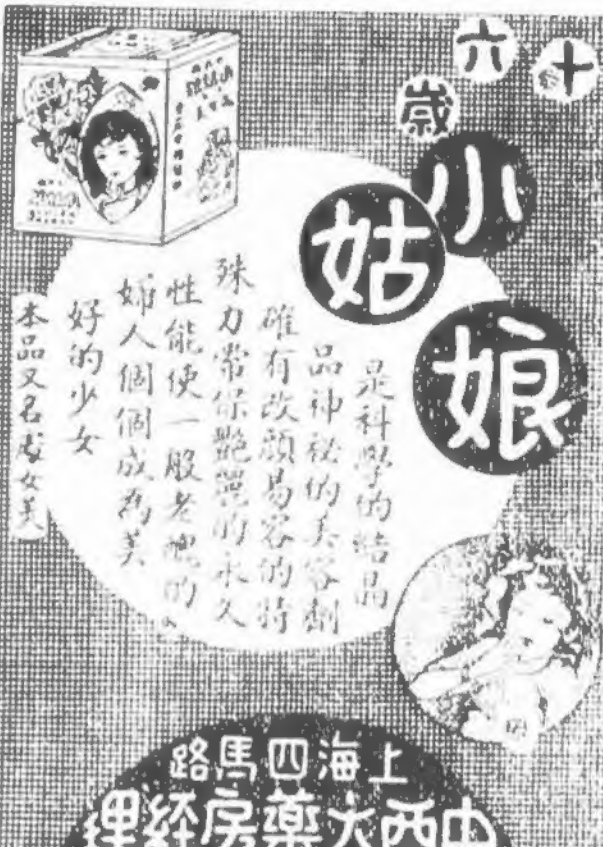 十六歲
小姑娘
是科學的結晶
品神秘的美容劑
確有改頭易容的特
殊力常保艷麗的永久
性能使一般老醜的
婦人個個成為美
好的少女
本品又名處女美
上海四馬路
中西大藥房經理